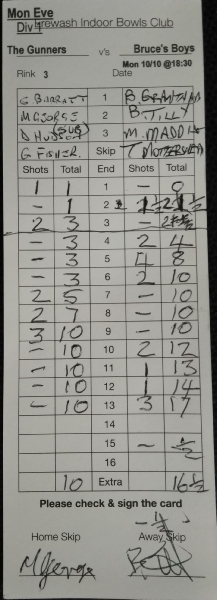 Mon Eve
Div 1 Erewash Indoor Bowls Club
The Gunners v's Bruce's Boys
Rink 3 Date Mon 10/10 @18:30
G BARRATT 1 B. GRANTHAM
M GEORGE 2 B. TILLY
D HUSSEY (SUB) 3 M. MADDI
G FISHER. Skip T MOTHERWELL
Shots Total End Shots Total
1 1 1 – 0
– 1 2 2½
2 3 3 –
– 3 4 2 4
– 3 5 4 8
– 3 6 2 10
2 5 7 – 10
2 7 8 – 10
3 10 9 – 10
– 10 10 2 12
– 10 11 1 13
– 10 12 1 14
– 10 13 3 17
14
15 – ½
16
10 Extra 16½
Please check & sign the card
– ½
Home Skip Away Skip
M George